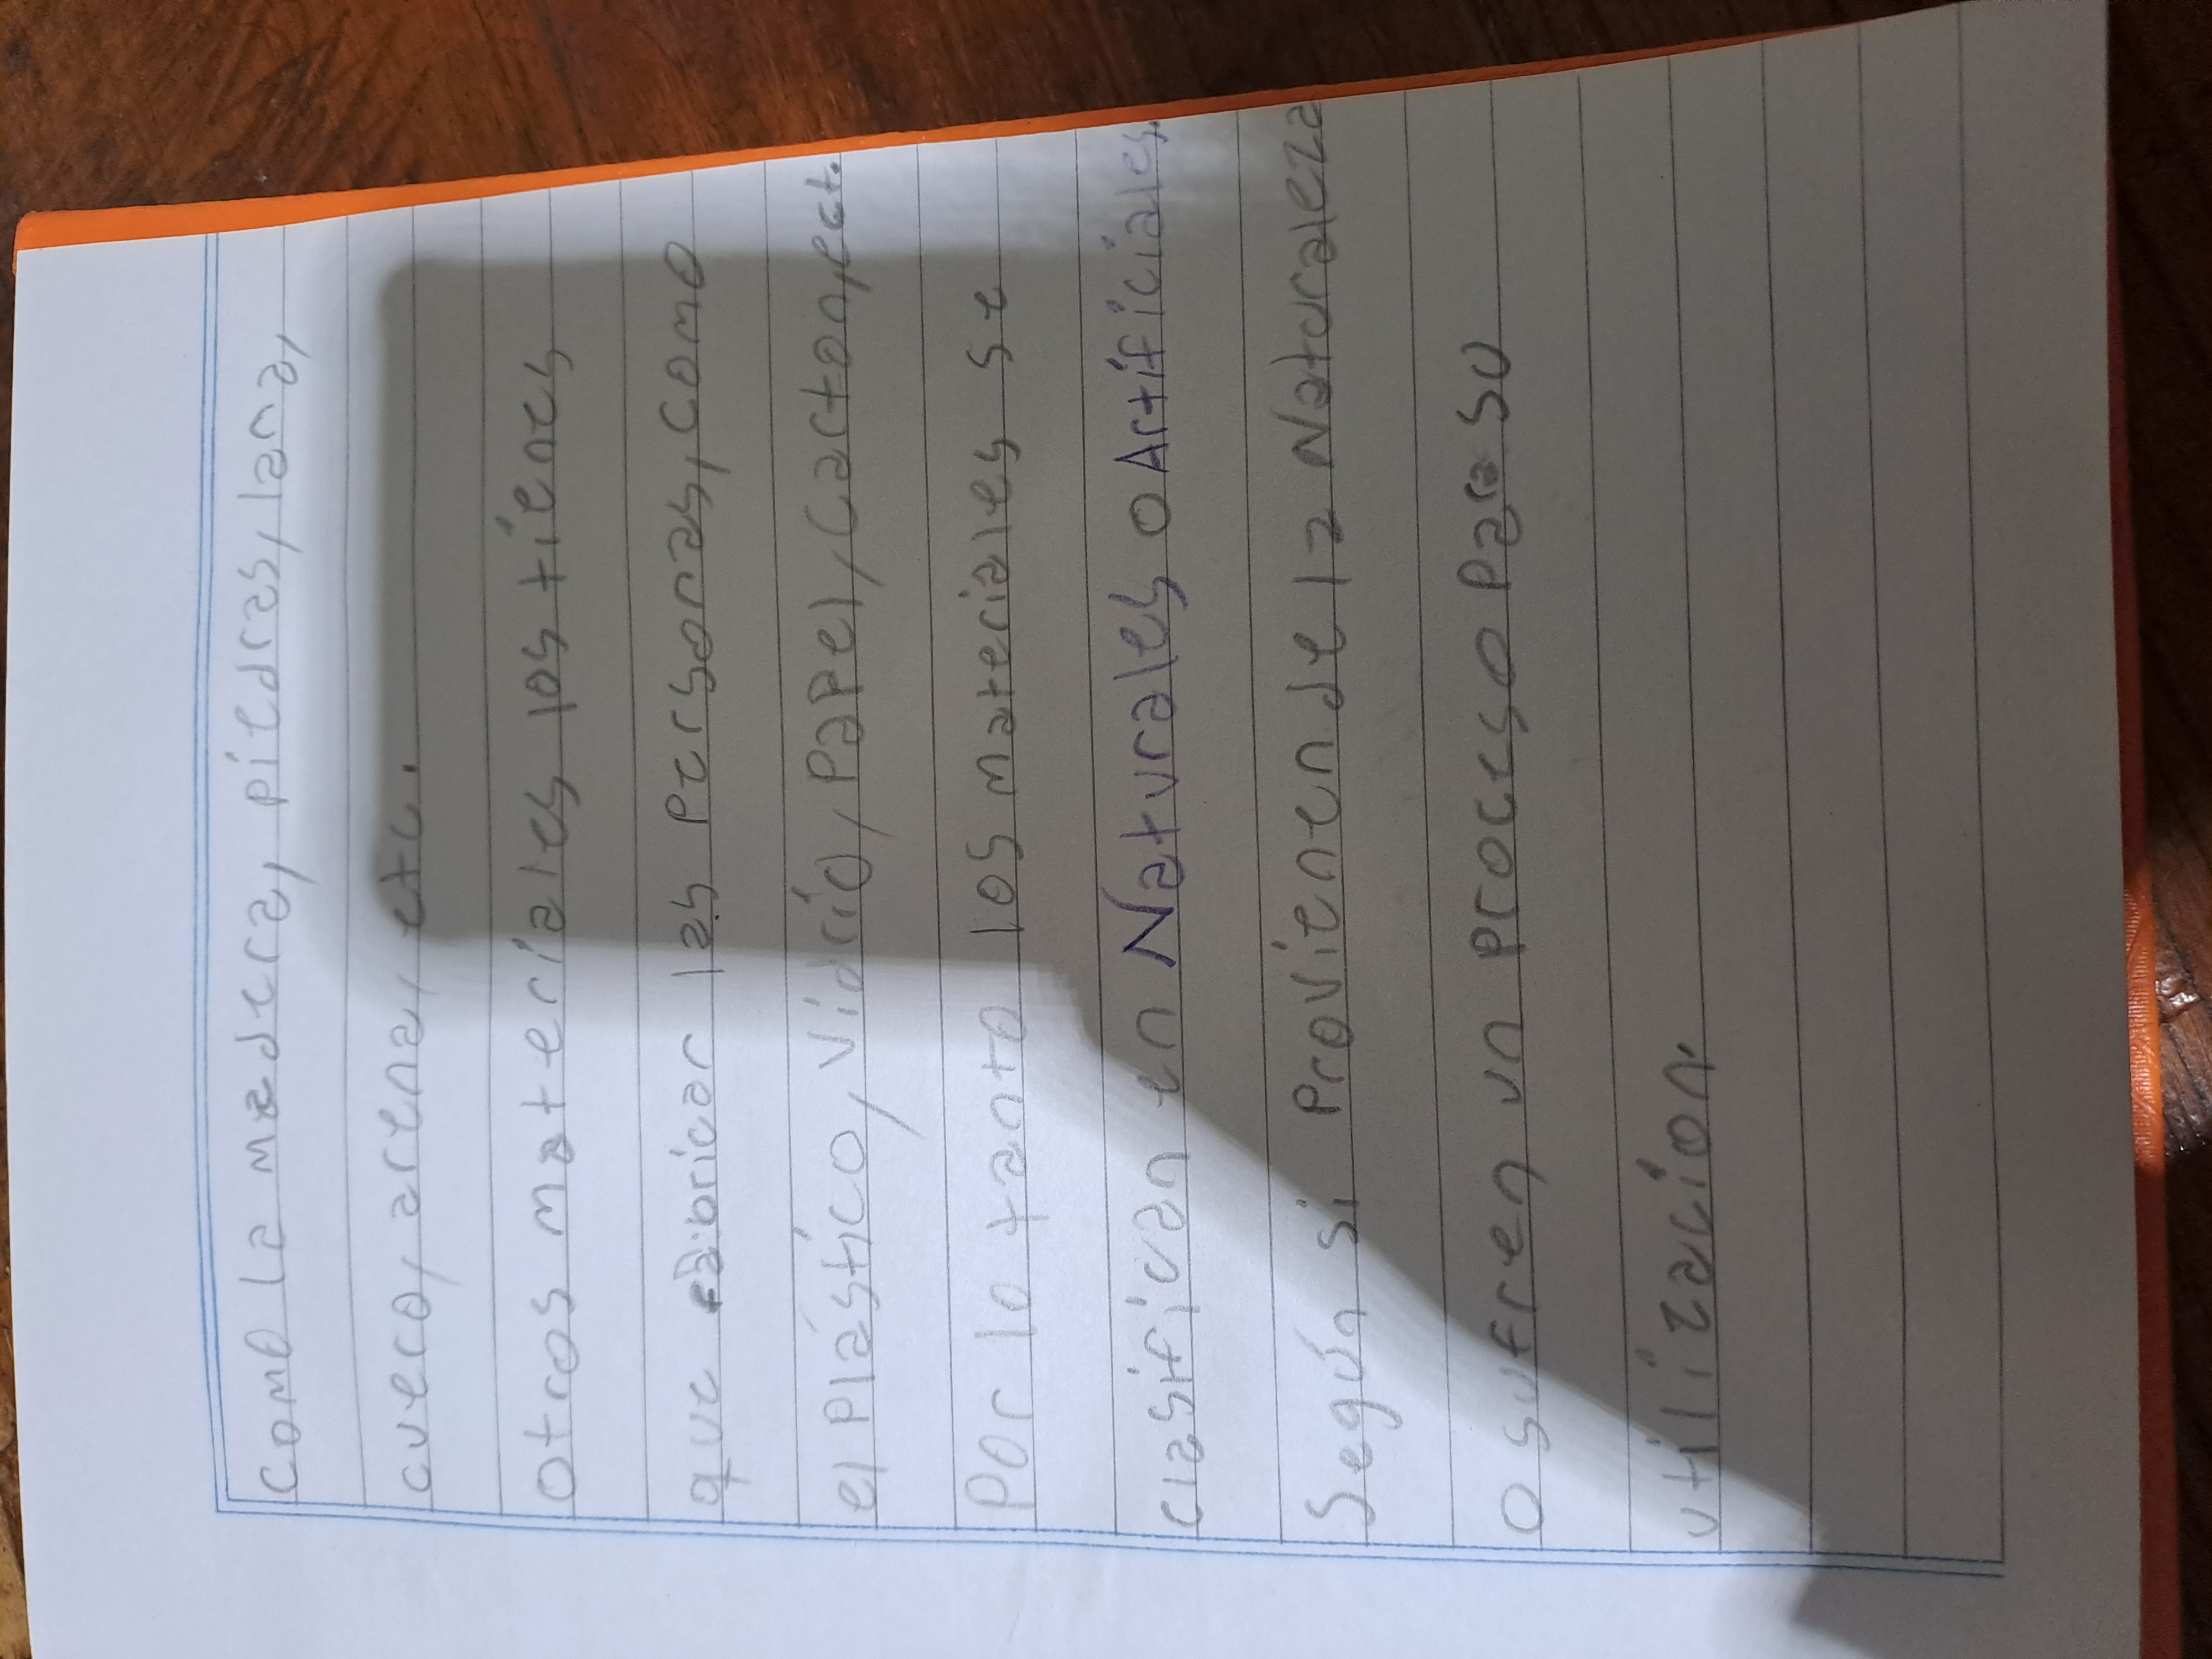 como la madera, piedras, lana,
cuero, arena, etc.
Otros materiales los tienes
que fabricar las personas, como
el plástico, vidrio, papel, carton, ect.
Por lo tanto los materiales se
clasifican en Naturales o Artificiales.
Según si Provienen de la Naturaleza
o sufren un proceso para su
utilización.